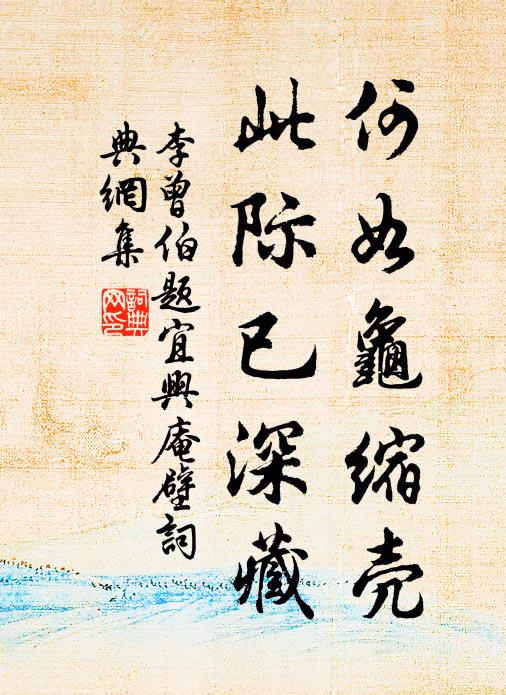 何如龜缩壳
此际已深藏
李曾伯题宜興庵壁詞
典網集
詞典网印